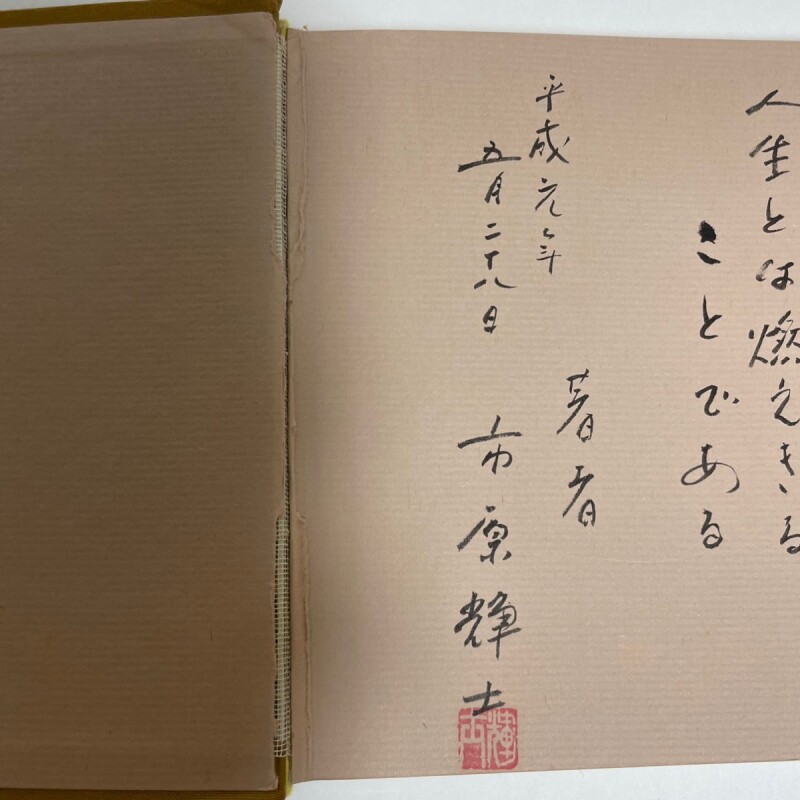 人生とは燃えきる
ことである
平成元年
五月二十八日
著者
市原輝士